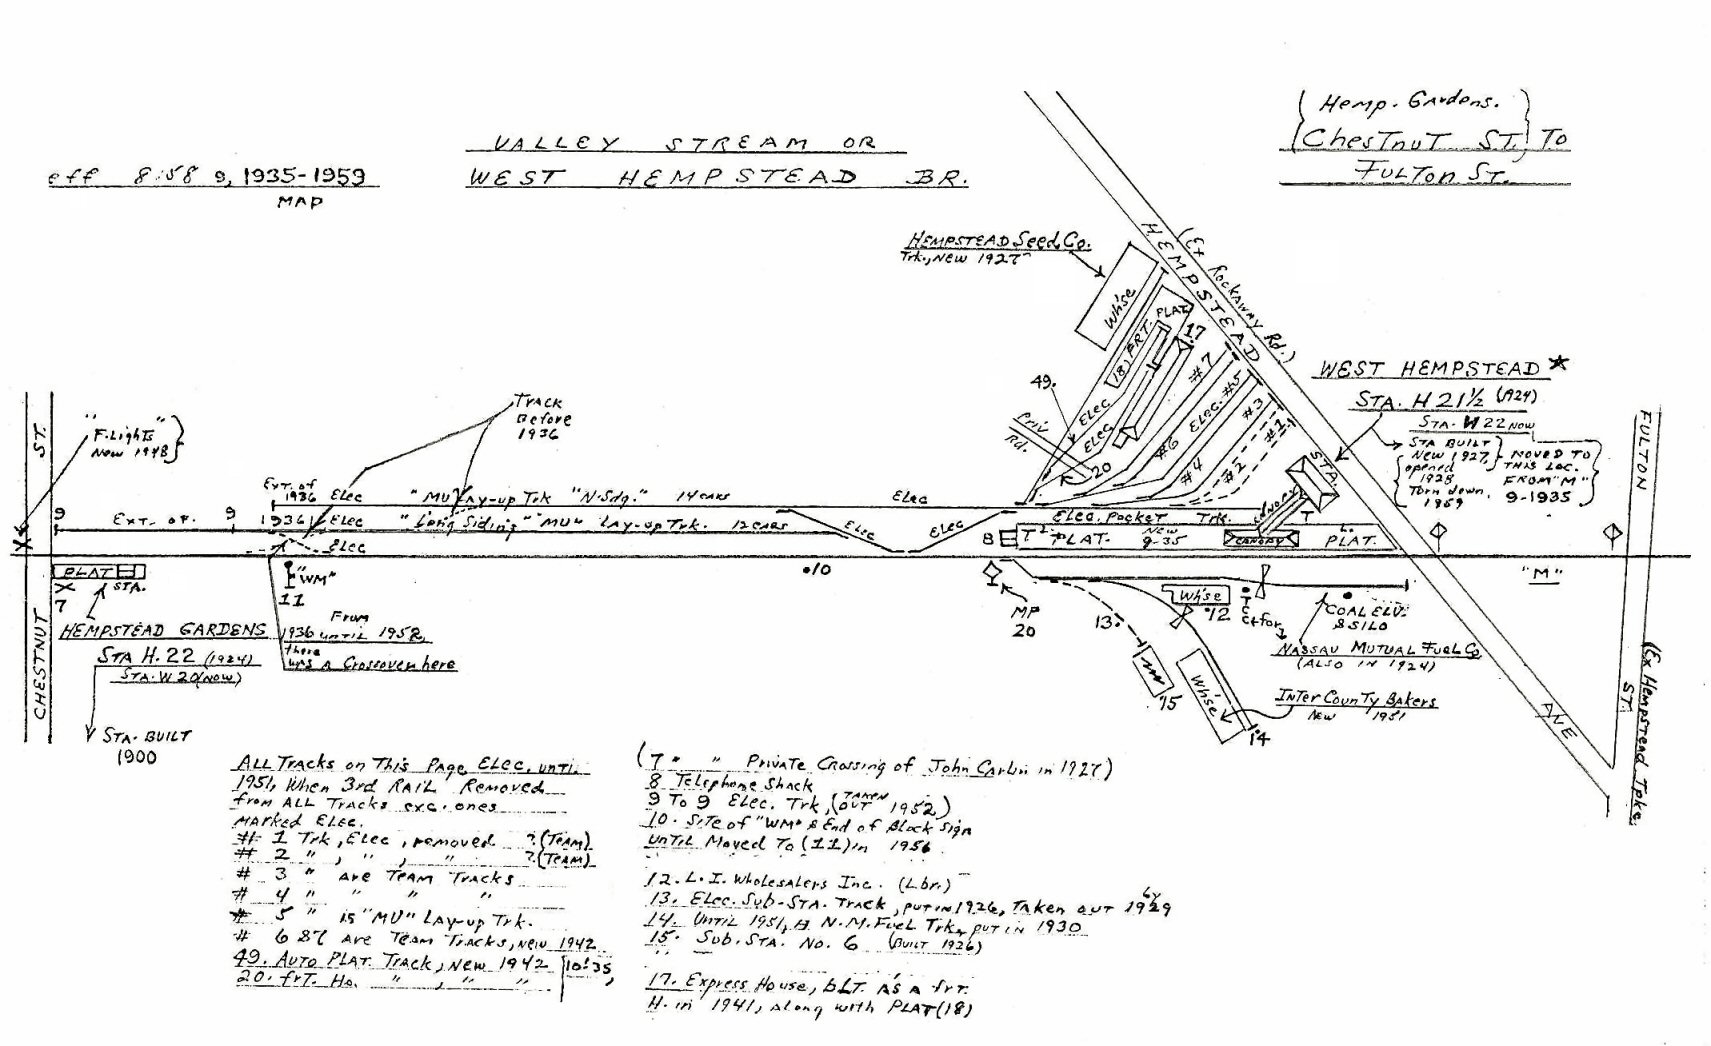 VALLEY STREAM OR
WEST HEMPSTEAD BR.
eff 8:58 9, 1935-1959
MAP
Hemp. Gardens.
Chestnut St. To
Fulton St.
Hempstead Seed Co.
Trk., New 1927
Wh'se
18, FRT. PLAT
17
HEMPSTEAD
(Ex Rockaway Rd.)
AVE
49.
Priv
Rd.
Elec
Elec
20
#7
#6 Elec. #5
#4
#3
#2 #1
STA.
Canopy
WEST HEMPSTEAD ★
STA. H 21½ (1924)
STA. W 22 now
STA BUILT
New 1927,
opened
1928
Torn down,
1959
MOVED TO
THIS LOC.
FROM "M"
9-1935
FULTON
ST.
(Ex Hempstead Tpke.
"F. Lights"
New 1948
ST.
CHESTNUT
Track
Before
1936
Ext. of
1936 Elec "MU" Lay-up Trk "N. Sdg." 14 cars Elec
9 Ext. of. 9 1936 Elec "Long Siding" "MU" Lay-up Trk. 12 cars Elec Elec
Elec
Elec. Pocket Trk. T
8 T PLAT. New
9-35 Canopy PLAT.
"M"
PLAT
STA.
X
7
HEMPSTEAD GARDENS
STA H. 22 (1924)
STA. W 20 (now)
STA. BUILT
1900
"WM"
11
From
1936 until 1958,
there
was a Crossover here
•10
MP
20
13.
Wh'se
•12
COAL ELV.
& SILO
NASSAU MUTUAL FUEL Co
(ALSO IN 1924)
15
Wh'se
14
Inter County Bakers
New 1951
ALL Tracks on This Page Elec. until
1951, When 3rd RAIL Removed
from ALL Tracks exc. ones
MARKED Elec.
# 1 Trk, Elec, removed ? (Team)
# 2 " , " , " ? (Team)
# 3 " are Team Tracks
# 4 " " " "
# 5 " is "MU" Lay-up Trk.
# 6 & 7 are Team Tracks, new 1942
49. Auto PLAT. Track, New 1942
20. frt. Ho. " , " "
10:35,
(7 • " Private Crossing of John Carlin in 1927)
8 Telephone Shack
9 To 9 Elec. Trk, (TAKEN OUT 1952)
10. Site of "WM" & End of Block Sign
until Moved To (11) in 1956
12. L. I. Wholesalers Inc. (Lbr.)
13. Elec. Sub-Sta. Track, put in 1926, Taken out by 1929
14. Until 1951, H N.M. Fuel Trk, put in 1930
15. Sub. Sta. No. 6 (Built 1926)
17. Express House, bLT. AS a frt.
H. in 1941, along with PLAT (18)